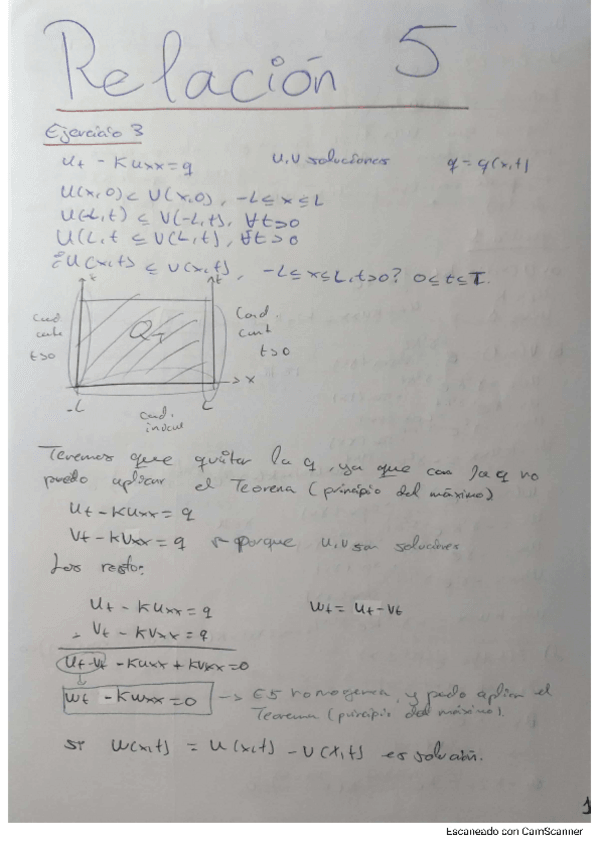 Relación 5
Ejercicio 3
ut - Kuxx = q u,v soluciones q = q(x,t)
u(x,0) < v(x,0), -L ≤ x ≤ L
u(-L,t) ≤ v(-L,t), ∀t>0
u(L,t ≤ v(L,t), ∀t>0
¿u(x,t) ≤ v(x,t), -L ≤ x ≤ L, t>0? 0 ≤ t ≤ T.
t t
Cond
cont
t>0
QT
Cond
cont
t>0
x
-L L
cond.
inicial
Tenemos que quitar la q, ya que con la q no
puedo aplicar el Teorema (principio del máximo)
ut - Kuxx = q
vt - Kvxx = q porque u,v son soluciones
Los resto:
ut - Kuxx = q wt = ut - vt
- vt - Kvxx = q
ut - vt - Kuxx + Kvxx = 0
wt - Kwxx = 0 → Es homogenea, y puedo aplicar el
Teorema (principio del máximo).
si w(x,t) = u(x,t) - v(x,t) es solución.
1
Escaneado con CamScanner